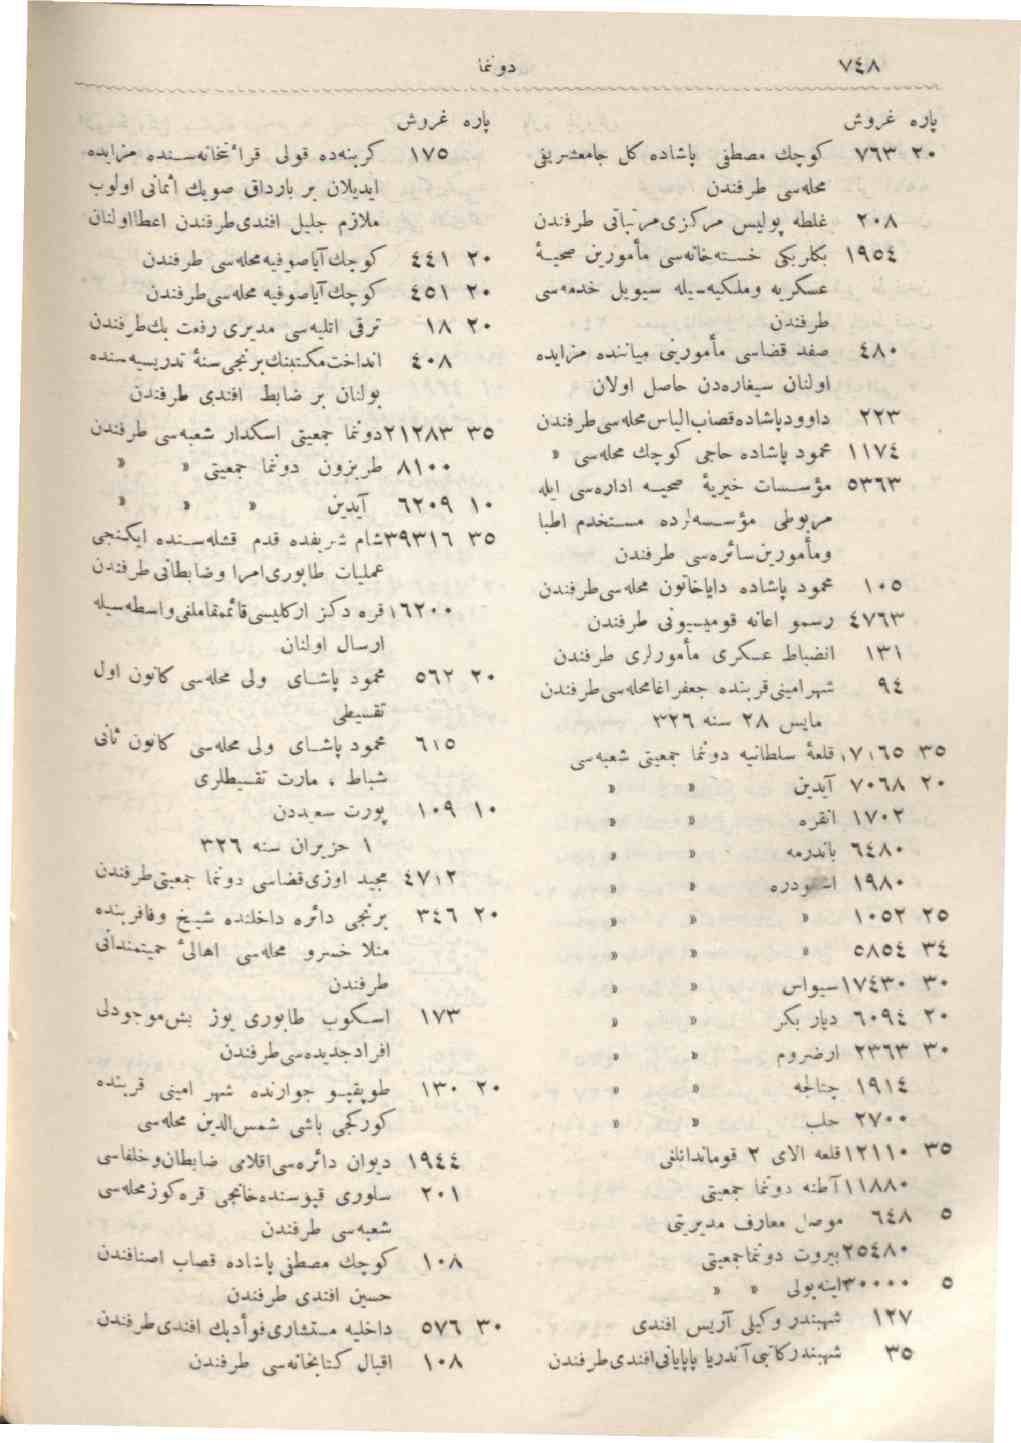 ٧٤٨
دوننما
پاره غروش
٢٠ ٧٦٣ كوچك مصطفى پاشاده كل جامعشريفى
محله‌سى طرفندن
٢٠٨ غلطه پوليس مركزى مرتباتى طرفندن
١٩٥٤ بكلربكى خسته‌خانه‌سى مأمورين صحيۀ
عسكريه وملكيه‌سيله سيويل خدمه‌سى
طرفندن
٤٨٠ صفد قضاسى مأمورينى مياننده مزايده
اولنان سيغاره‌دن حاصل اولان
٢٢٣ داوودپاشاده قصاب الياس محله‌سى طرفندن
١١٧٤ محمود پاشاده حاجى كوچك محله‌سى »
٥٣٦٣ مؤسسات خيريۀ صحيه اداره‌سى ايله
مربوطى مؤسسه‌لرده مستخدم اطبا
ومأمورين سائره‌سى طرفندن
١٠٥ محمود پاشاده داياخاتون محله‌سى طرفندن
٤٧٦٣ رسمو اعانه قوميسيونى طرفندن
١٣١ انضباط عسكرى مأمورلرى طرفندن
٩٤ شهرامينى قربنده جعفراغا محله‌سى طرفندن
مايس ٢٨ سنه ٣٢٦
٣٥ ١٧١٦٥ قلعۀ سلطانيه دوننما جمعيتى شعبه‌سى
٢٠ ٧٠٦٨ آيدين » »
١٧٠٢ انقره » »
٦٤٨٠ باندرمه » »
١٩٨٠ اشقودره » »
٢٥ ١٠٥٢ » » »
٣٤ ٥٨٥٤ » » »
٣٠ ١٧٤٣٠ سيواس » »
٢٠ ٦٠٩٤ ديار بكر » »
٣٠ ٢٣٦٣ ارضروم » »
١٩١٤ چتالجه » »
٢٧٠٠ حلب » »
٣٥ ١٢١١٠ قلعه الاى ٢ قوماندانلغى
١١٨٨٠ آطنه دوننما جمعيتى
٥ ٦٤٨ موصل معارف مديريتى
٢٥٤٨٠ بيروت دوننما جمعيتى
٥ ٣٠٠٠٠ اينه‌بولى » »
١٢٧ شهبندر وكيلى آريس افندى
٣٥ شهبندر كاتبى آندريا پاپايانى افندى طرفندن
پاره غروش
١٧٥ كربنه‌ده قولى قرائتخانه‌سنده مزايده
ايديلان بر بارداق صويك اثمانى اولوب
ملازم جليل افندى طرفندن اعطا اولنان
٢٠ ٤٤١ كوچك آياصوفيه محله‌سى طرفندن
٢٠ ٤٥١ كوچك آياصوفيه محله‌سى طرفندن
٢٠ ١٨ ترقى اتليه‌سى مديرى رفعت بك طرفندن
٤٠٨ انداخت مكتبنك برنجى سنۀ تدريسيه‌سنده
بولنان بر ضابط افندى طرفندن
٣٥ ٢١٢٨٣ دوننما جمعيتى اسكدار شعبه‌سى طرفندن
٨١٠٠ طربزون دوننما جمعيتى » »
١٠ ٦٢٠٩ آيدين » » »
٣٥ ٣٩٣١٦ شام شريفده قدم قشله‌سنده ايكنجى
عمليات طابورى امرا وضابطانى طرفندن
١٦٢٠٠ قره دكز اركليسى قائممقاملغى واسطه‌سيله
ارسال اولنان
٢٠ ٥٦٢ محمود پاشاى ولى محله‌سى كانون اول
تقسيطى
٦١٥ محمود پاشاى ولى محله‌سى كانون ثانى
شباط ، مارت تقسيطلرى
١٠ ١٠٩ پورت سعيددن
١ حزيران سنه ٣٢٦
٤٧١٢ مجيد اوزى قضاسى دوننما جمعيتى طرفندن
٢٠ ٣٤٦ برنجى دائره داخلنده شيخ وفا قربنده
منلا خسرو محله‌سى اهالئ حميتمندانى
طرفندن
١٧٣ اسكوب طابورى يوز بش موجودلى
افراد جديده‌سى طرفندن
٢٠ ١٣٠ طوپقپو جوارنده شهر امينى قربنده
كوركجى باشى شمس‌الدين محله‌سى
١٩٤٤ ديوان دائره‌سى اقلامى ضابطان وخلفاسى
٢٠١ سلورى قپوسنده خانجى قره كوز محله‌سى
شعبه‌سى طرفندن
١٠٨ كوچك مصطفى پاشاده قصاب اصنافندن
حسين افندى طرفندن
٣٠ ٥٧٦ داخليه مستشارى فوأد بك افندى طرفندن
١٠٨ اقبال كتابخانه‌سى طرفندن